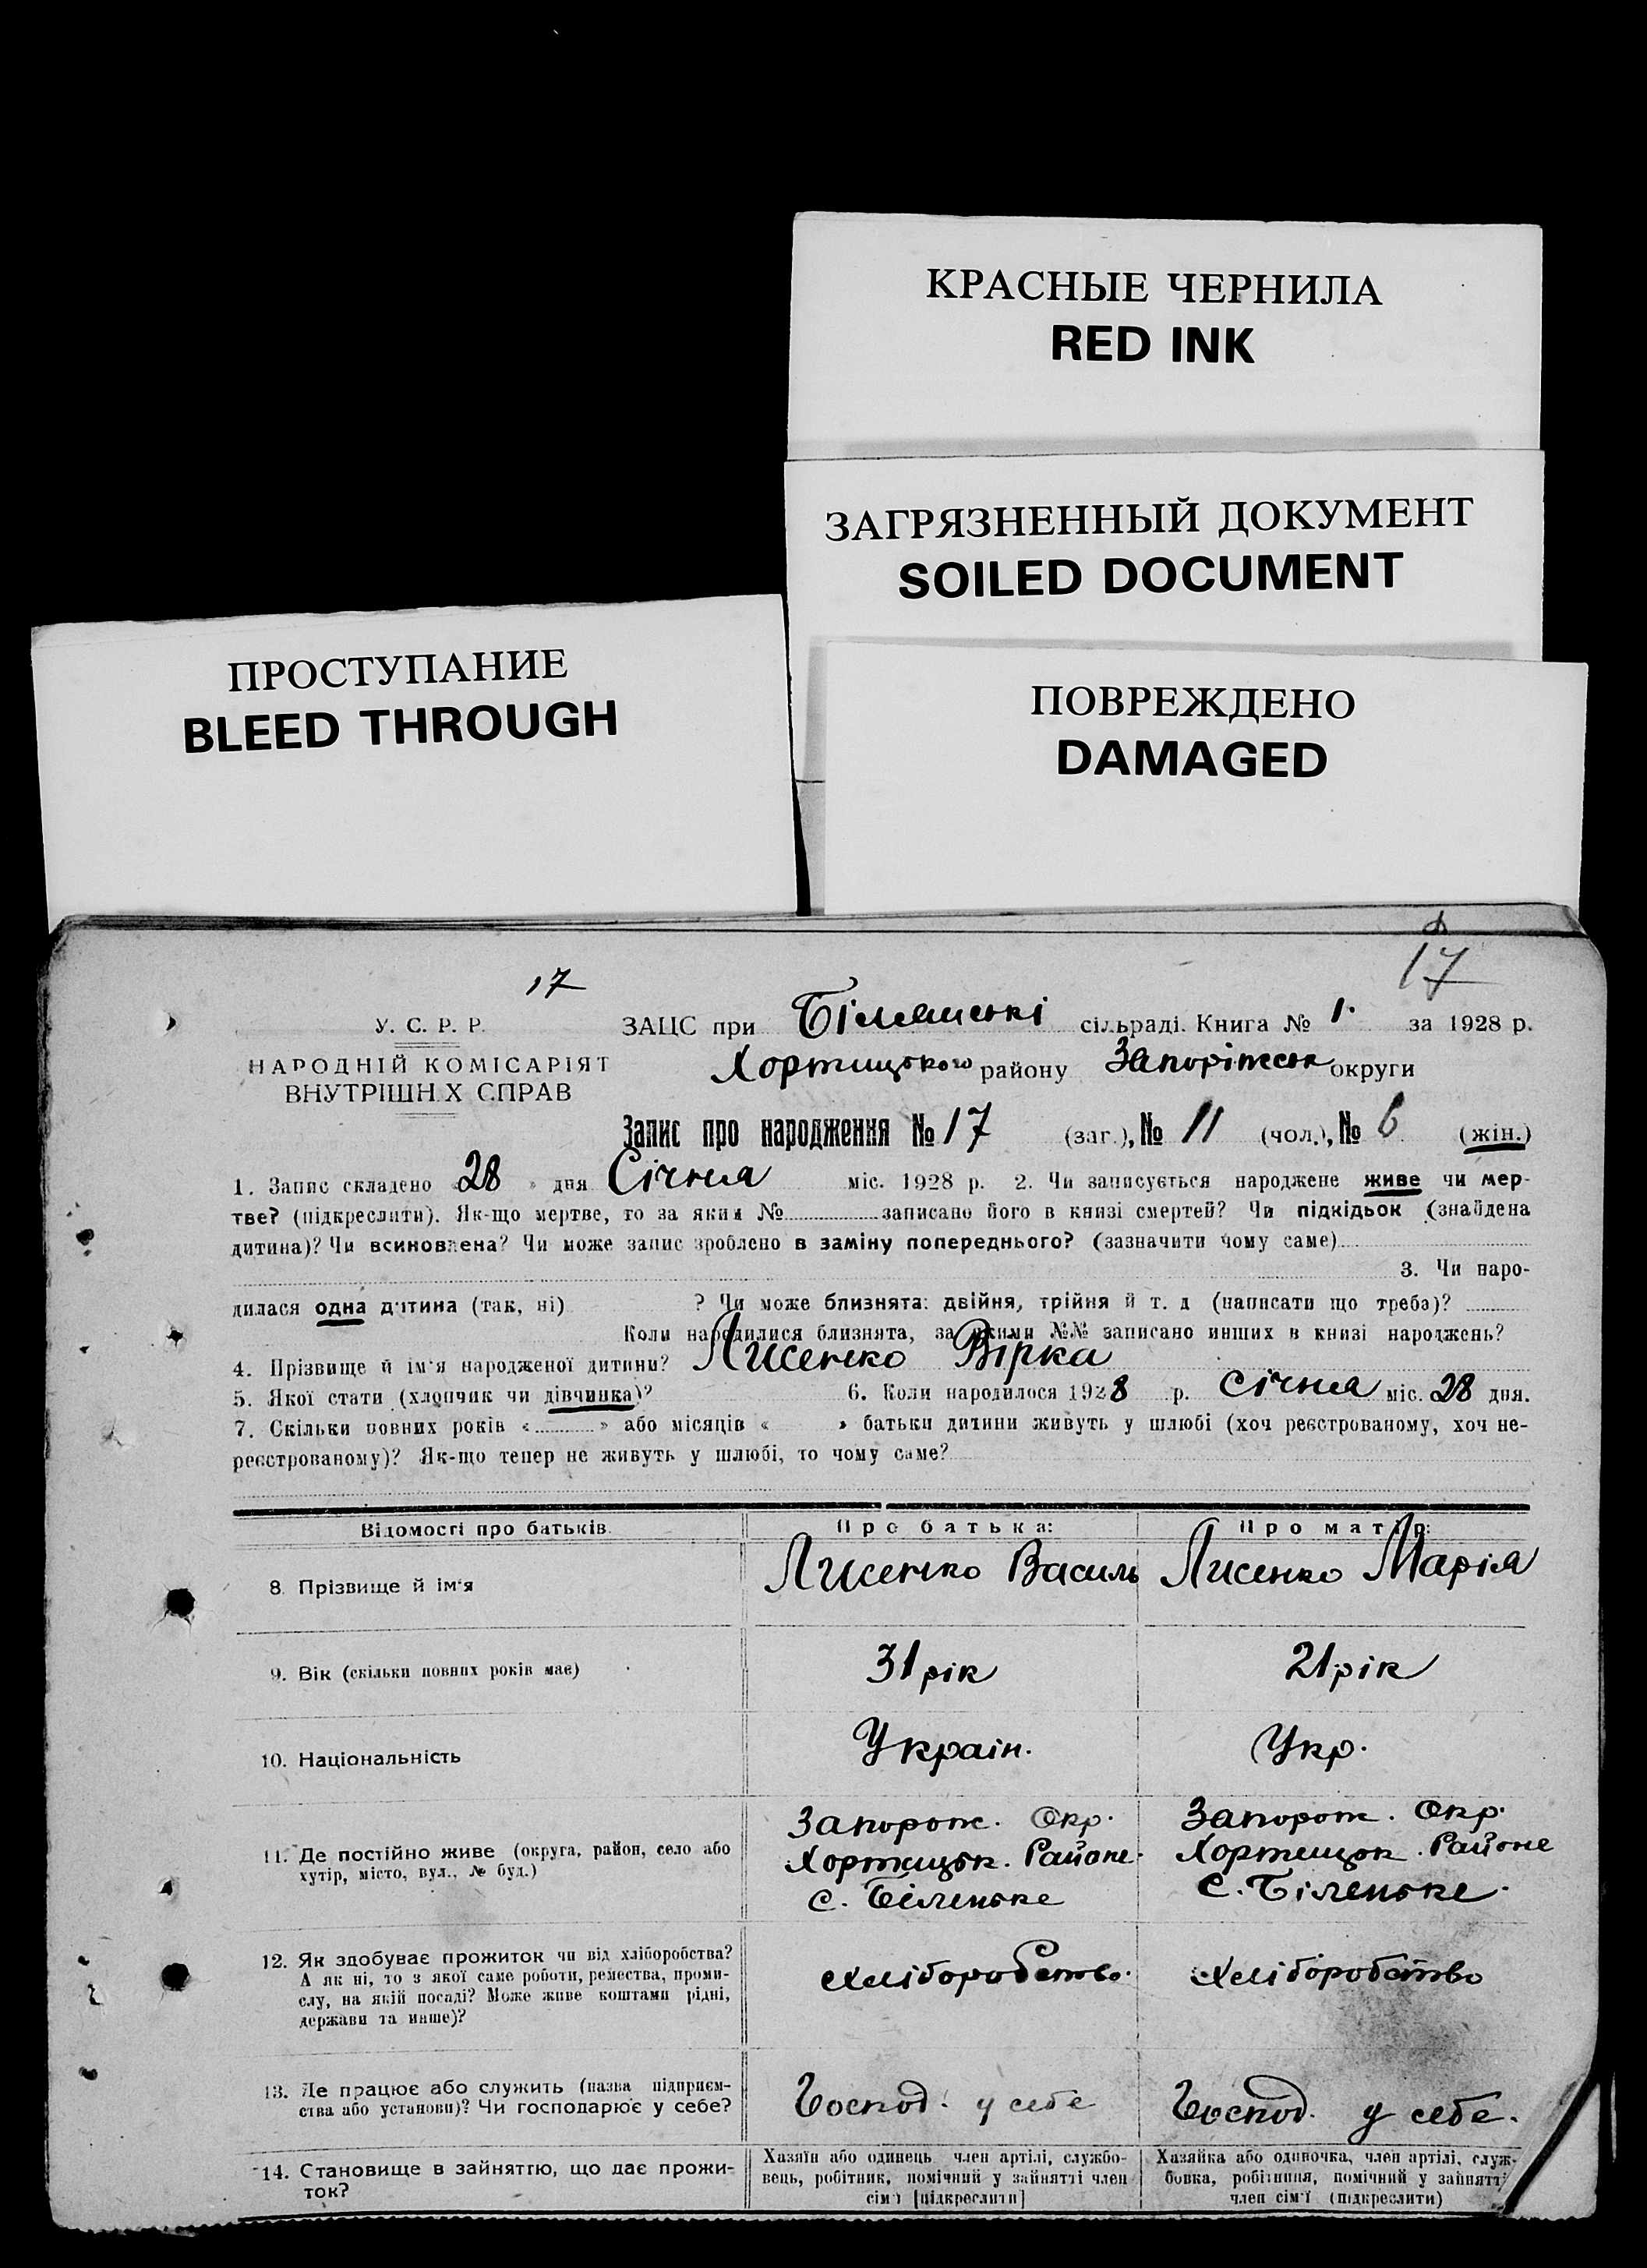 КРАСНЫЕ ЧЕРНИЛА
RED INK
ЗАГРЯЗНЕННЫЙ ДОКУМЕНТ
SOILED DOCUMENT
ПРОСТУПАНИЕ
BLEED THROUGH
ПОВРЕЖДЕНО
DAMAGED
17
17
У. С. Р. Р.
НАРОДНІЙ КОМІСАРІЯТ
ВНУТРІШН.Х СПРАВ
ЗАЦС при сільраді. Книга № 1. за 1928 р.
Хортицького району Запоріжськ округи
Запис про народження № 17 (заг.), № 11 (чол.), № 6 (жін.)
1. Запис складено «28» дня Січня міс. 1928 р. 2. Чи записується народжене живе чи мер-
тве? (підкреслити). Як-що мертве, то за яким № записано його в книзі смертей? Чи підкідьок (знайдена
дитина)? Чи всиновлена? Чи може запис зроблено в заміну попереднього? (зазначити чому саме)
3. Чи наро-
дилася одна дитина (так, ні) ? Чи може близнята: двійня, трійня й т. д (написати що треба)?
Коли народилися близнята, за якими №№ записано инших в книзі народжень?
4. Прізвище й ім'я народженої дитини? Лисенко Вірка
5. Якої стати (хлопчик чи дівчинка)? 6. Коли народилося 1928 р. Січня міс. 28 дня.
7. Скільки повних років « » або місяців « » батьки дитини живуть у шлюбі (хоч реєстрованому, хоч не-
реєстрованому)? Як-що тепер не живуть у шлюбі, то чому саме?
Відомості про батьків Про батька: Про матір:
8. Прізвище й ім'я Лисенко Василь Лисенко Марія
9. Вік (скільки повних років має) 31 рік 21 рік
10. Національність Україн. Укр.
11. Де постійно живе (округа, район, село або
хутір, місто, вул., № буд.)
Запорож. Окр. Запорож. Окр.
Хортицьк. Районе. Хортицьк. Районе
с. Біленьке С. Біленьке.
12. Як здобуває прожиток чи від хліборобства?
А як ні, то з якої саме роботи, ремества, проми-
слу, на якій посаді? Може живе коштами рідні,
держави та инше)?
хліборобство. хліборобство
13. Де працює або служить (назва підприєм-
ства або установи)? Чи господарює у себе?
Господ. у себе Господ. у себе.
14. Становище в зайняттю, що дає прожи-
ток?
Хазяїн або одинець, член артілі, службо-
вець, робітник, помічний у зайнятті член
сім'ї [підкреслити]
Хазяйка або одиночка, член артілі, служ-
бовка, робітниця, помічний у зайнятті
член сім'ї (підкреслити)